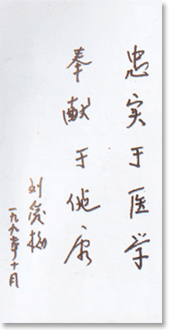 忠实于医学
奉献于健康
刘俊梅
一九九六年十月